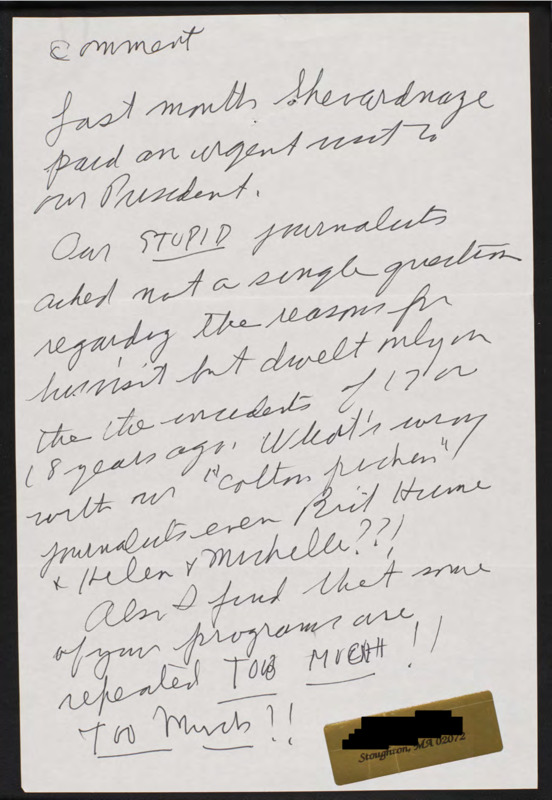 Comment
Last month Shevardnaze
paid an urgent visit to
our President.
Our STUPID journalists
asked not a single question
regarding the reasons for
his visit but dwelt only on
the the incidents of 17 or
18 years ago. What's wrong
with our "cotton pichen"
journalists even Brit Hume
& Helen & Michelle??!
Also I find that some
of your programs are
repeated TOO MUCH!!
Too Much!!
Stoughton, MA 02072